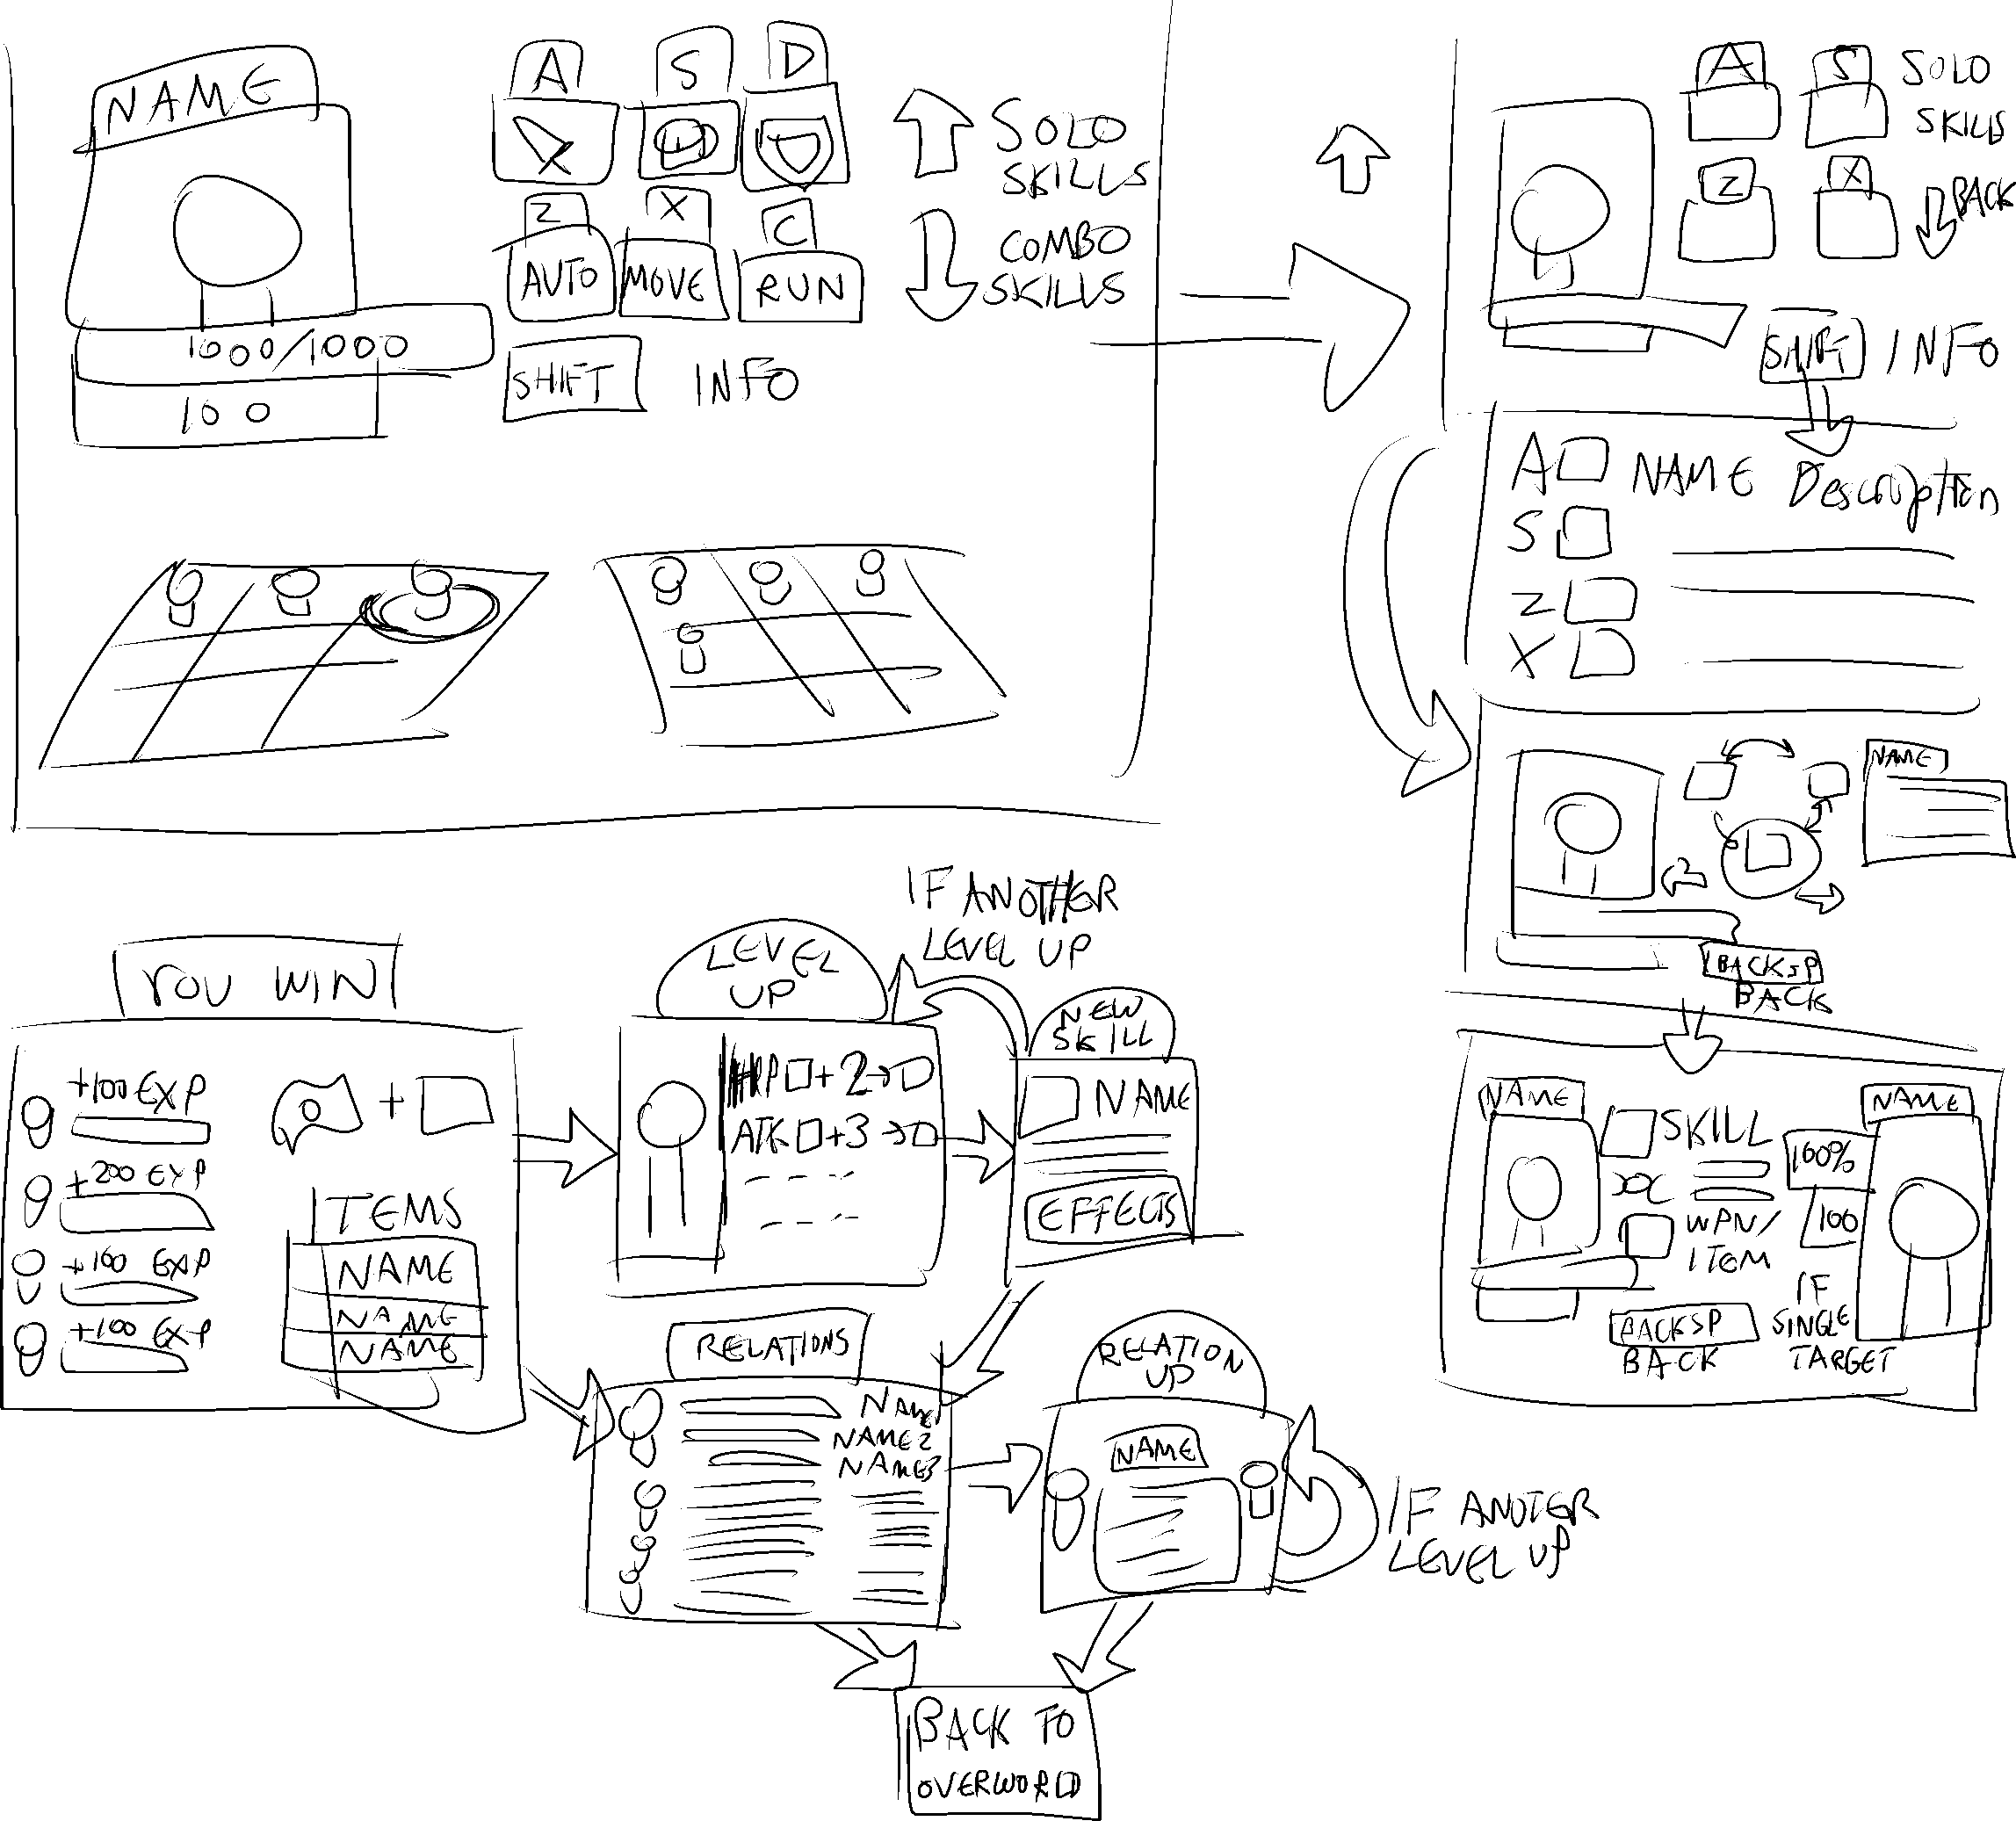 NAME
A S D
Z X C
AUTO MOVE RUN
SOLO
SKILLS
COMBO
SKILLS
1000/1000
100
SHIFT INFO
A S SOLO
SKILLS
Z X BACK
SHIFT INFO
A NAME Description
S
Z
X
NAME
BACKSP
BACK
NAME NAME
SKILL
100%
100
WPN/
ITEM
IF
SINGLE
TARGET
BACKSP
BACK
YOU WIN
+100 EXP
+200 EXP
+100 EXP
+100 EXP
+
ITEMS
NAME
NAME
NAME
LEVEL
UP
IF ANOTHER
LEVEL UP
HP +2→
ATK +3→
NEW
SKILL
NAME
EFFECTS
RELATIONS
NAME
NAME2
NAME3
RELATION
UP
NAME
IF ANOTER
LEVEL UP
BACK TO
OVERWORLD